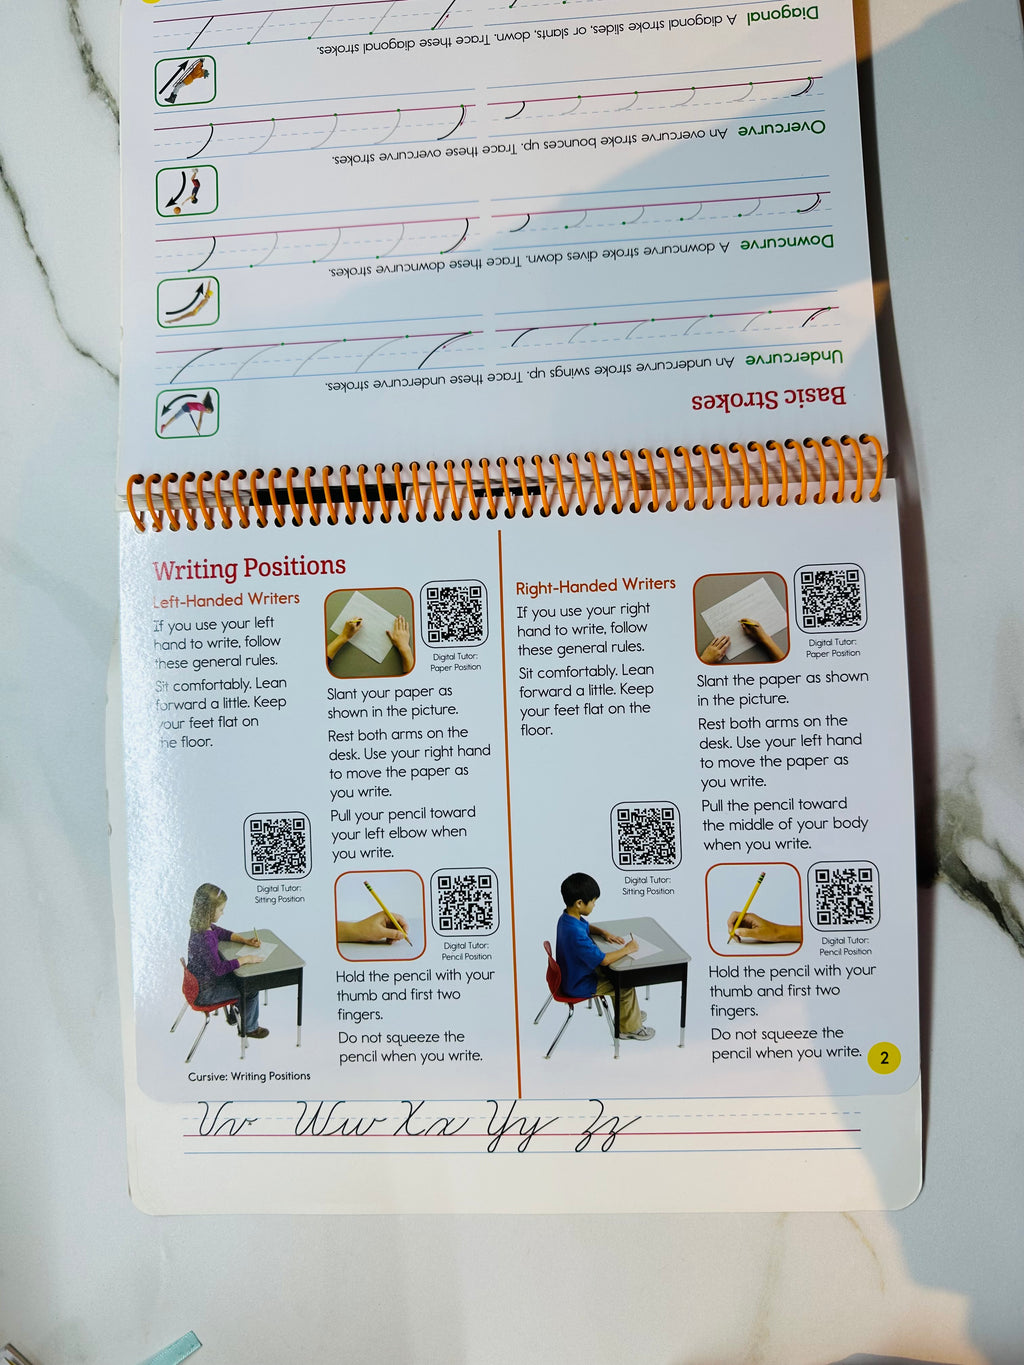 Writing Positions
Left-Handed Writers
If you use your left
hand to write, follow
these general rules.
Sit comfortably. Lean
forward a little. Keep
your feet flat on
the floor.
Digital Tutor:
Sitting Position
Digital Tutor:
Paper Position
Slant your paper as
shown in the picture.
Rest both arms on the
desk. Use your right hand
to move the paper as
you write.
Pull your pencil toward
your left elbow when
you write.
Digital Tutor:
Pencil Position
Hold the pencil with your
thumb and first two
fingers.
Do not squeeze the
pencil when you write.
Cursive: Writing Positions
Right-Handed Writers
If you use your right
hand to write, follow
these general rules.
Sit comfortably. Lean
forward a little. Keep
your feet flat on the
floor.
Digital Tutor:
Sitting Position
Digital Tutor:
Paper Position
Slant the paper as shown
in the picture.
Rest both arms on the
desk. Use your left hand
to move the paper as
you write.
Pull the pencil toward
the middle of your body
when you write.
Digital Tutor:
Pencil Position
Hold the pencil with your
thumb and first two
fingers.
Do not squeeze the
pencil when you write.
2
Vv Ww Xx Yy Zz
Basic Strokes
Undercurve An undercurve stroke swings up. Trace these undercurve strokes.
Downcurve A downcurve stroke dives down. Trace these downcurve strokes.
Overcurve An overcurve stroke bounces up. Trace these overcurve strokes.
Diagonal A diagonal stroke slides, or slants, down. Trace these diagonal strokes.